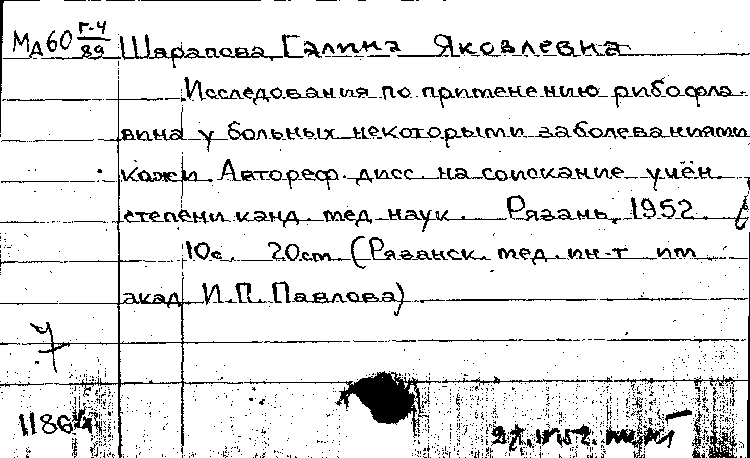 Мд60 Г-4/89 Шарапова, Галина Яковлевна
Исследования по применению рибофла-
вина у больных некоторыми заболеваниями
кожи. Автореф. дисс. на соискание учён.
степени канд. мед. наук. Рязань, 1952.
10с. 20см. (Рязанск. мед. ин-т им.
акад. И.П. Павлова).
11864